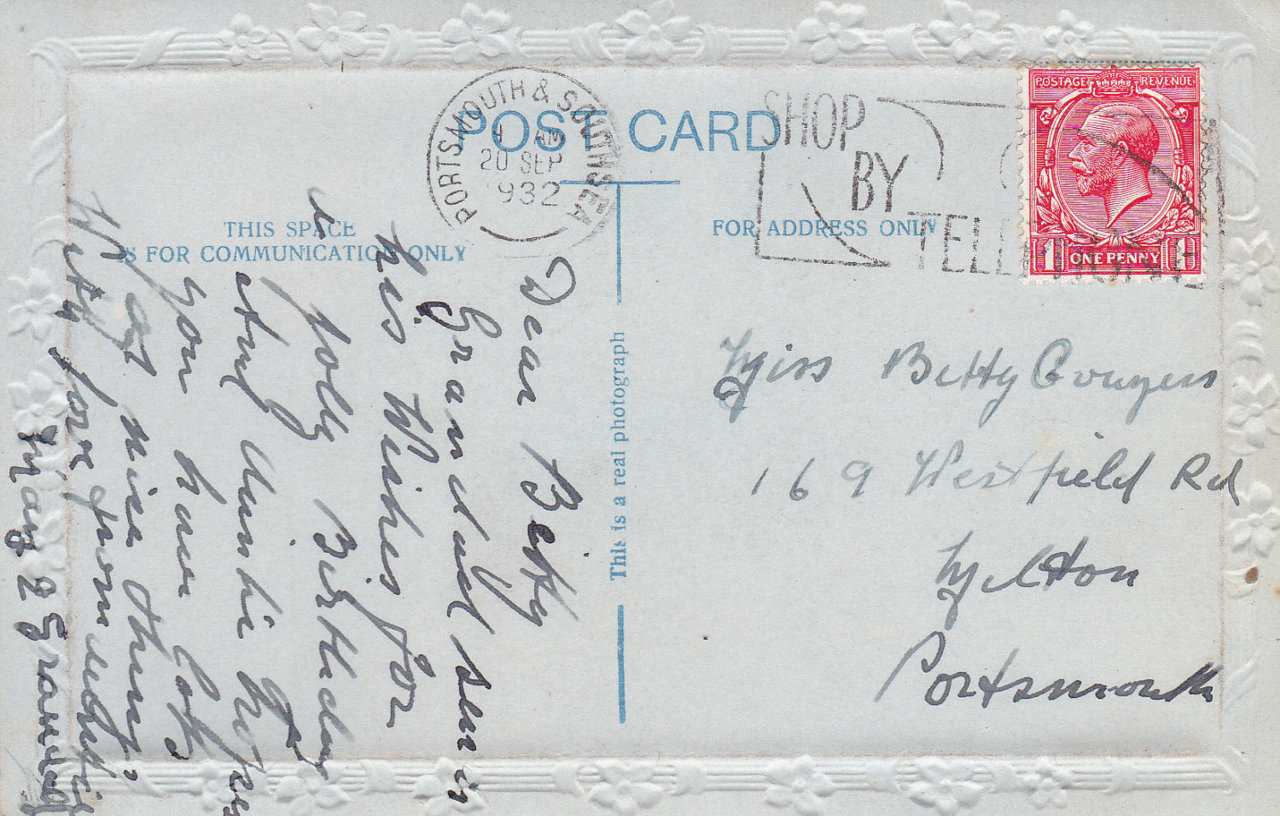 POST CARD
PORTSMOUTH & SOUTHSEA
AM
20 SEP
1932
SHOP
BY
TELEPHONE
POSTAGE REVENUE
1 ONE PENNY 1
THIS SPACE
IS FOR COMMUNICATION ONLY
FOR ADDRESS ONLY
This is a real photograph
Dear Betty
Grandad
his Wishes for
a jolly Birthday
Auntie hopes
you have lots
nice
With love from Auntie
May & Grandad
Miss Betty
169 Westfield Rd
Milton
Portsmouth